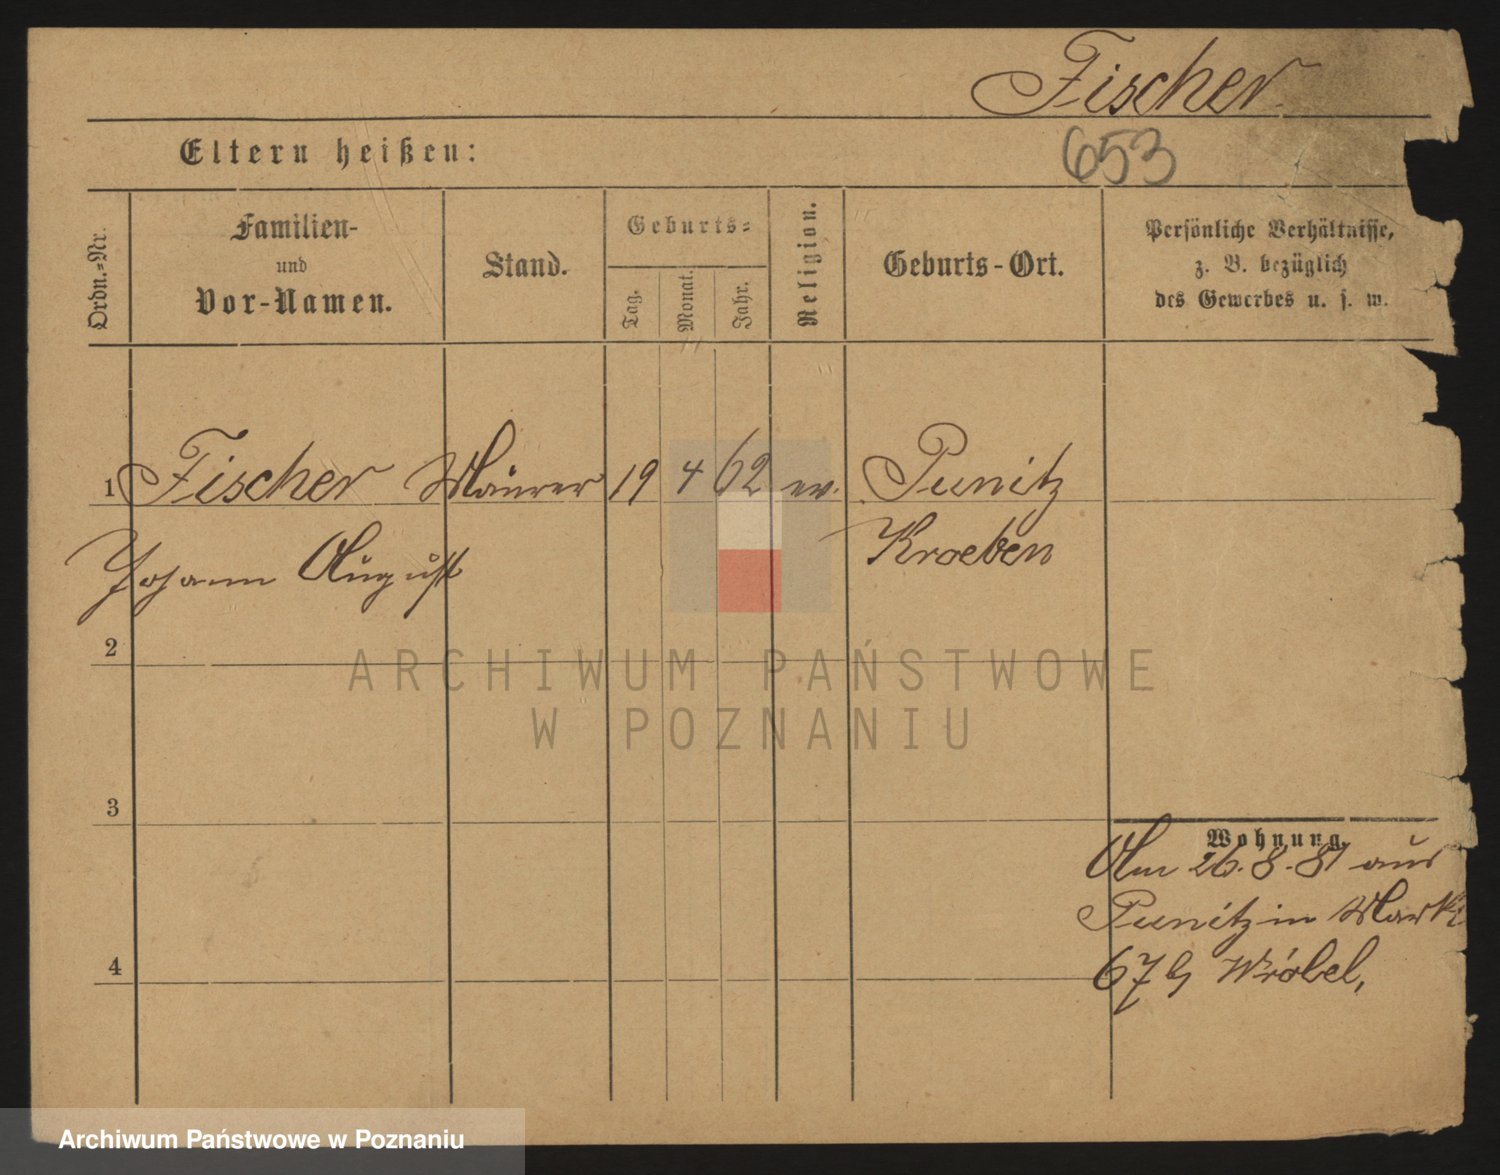 Fischer
653
Eltern heißen:
Ordn.=Nr.
Familien-
und
Vor-Namen.
Stand.
Geburts=
Tag.
Monat.
Jahr.
Religion.
Geburts-Ort.
Persönliche Verhältnisse,
z. B. bezüglich
des Gewerbes u. s. w.
1 Fischer Maurer 19 4 62 ev. Punitz
Johann August Kroeben
2
3
Wohnung.
Am 26.8.81 aus
Punitz in Markt
4
67 b Wróbel,
ARCHIWUM PAŃSTWOWE
W POZNANIU
Archiwum Państwowe w Poznaniu